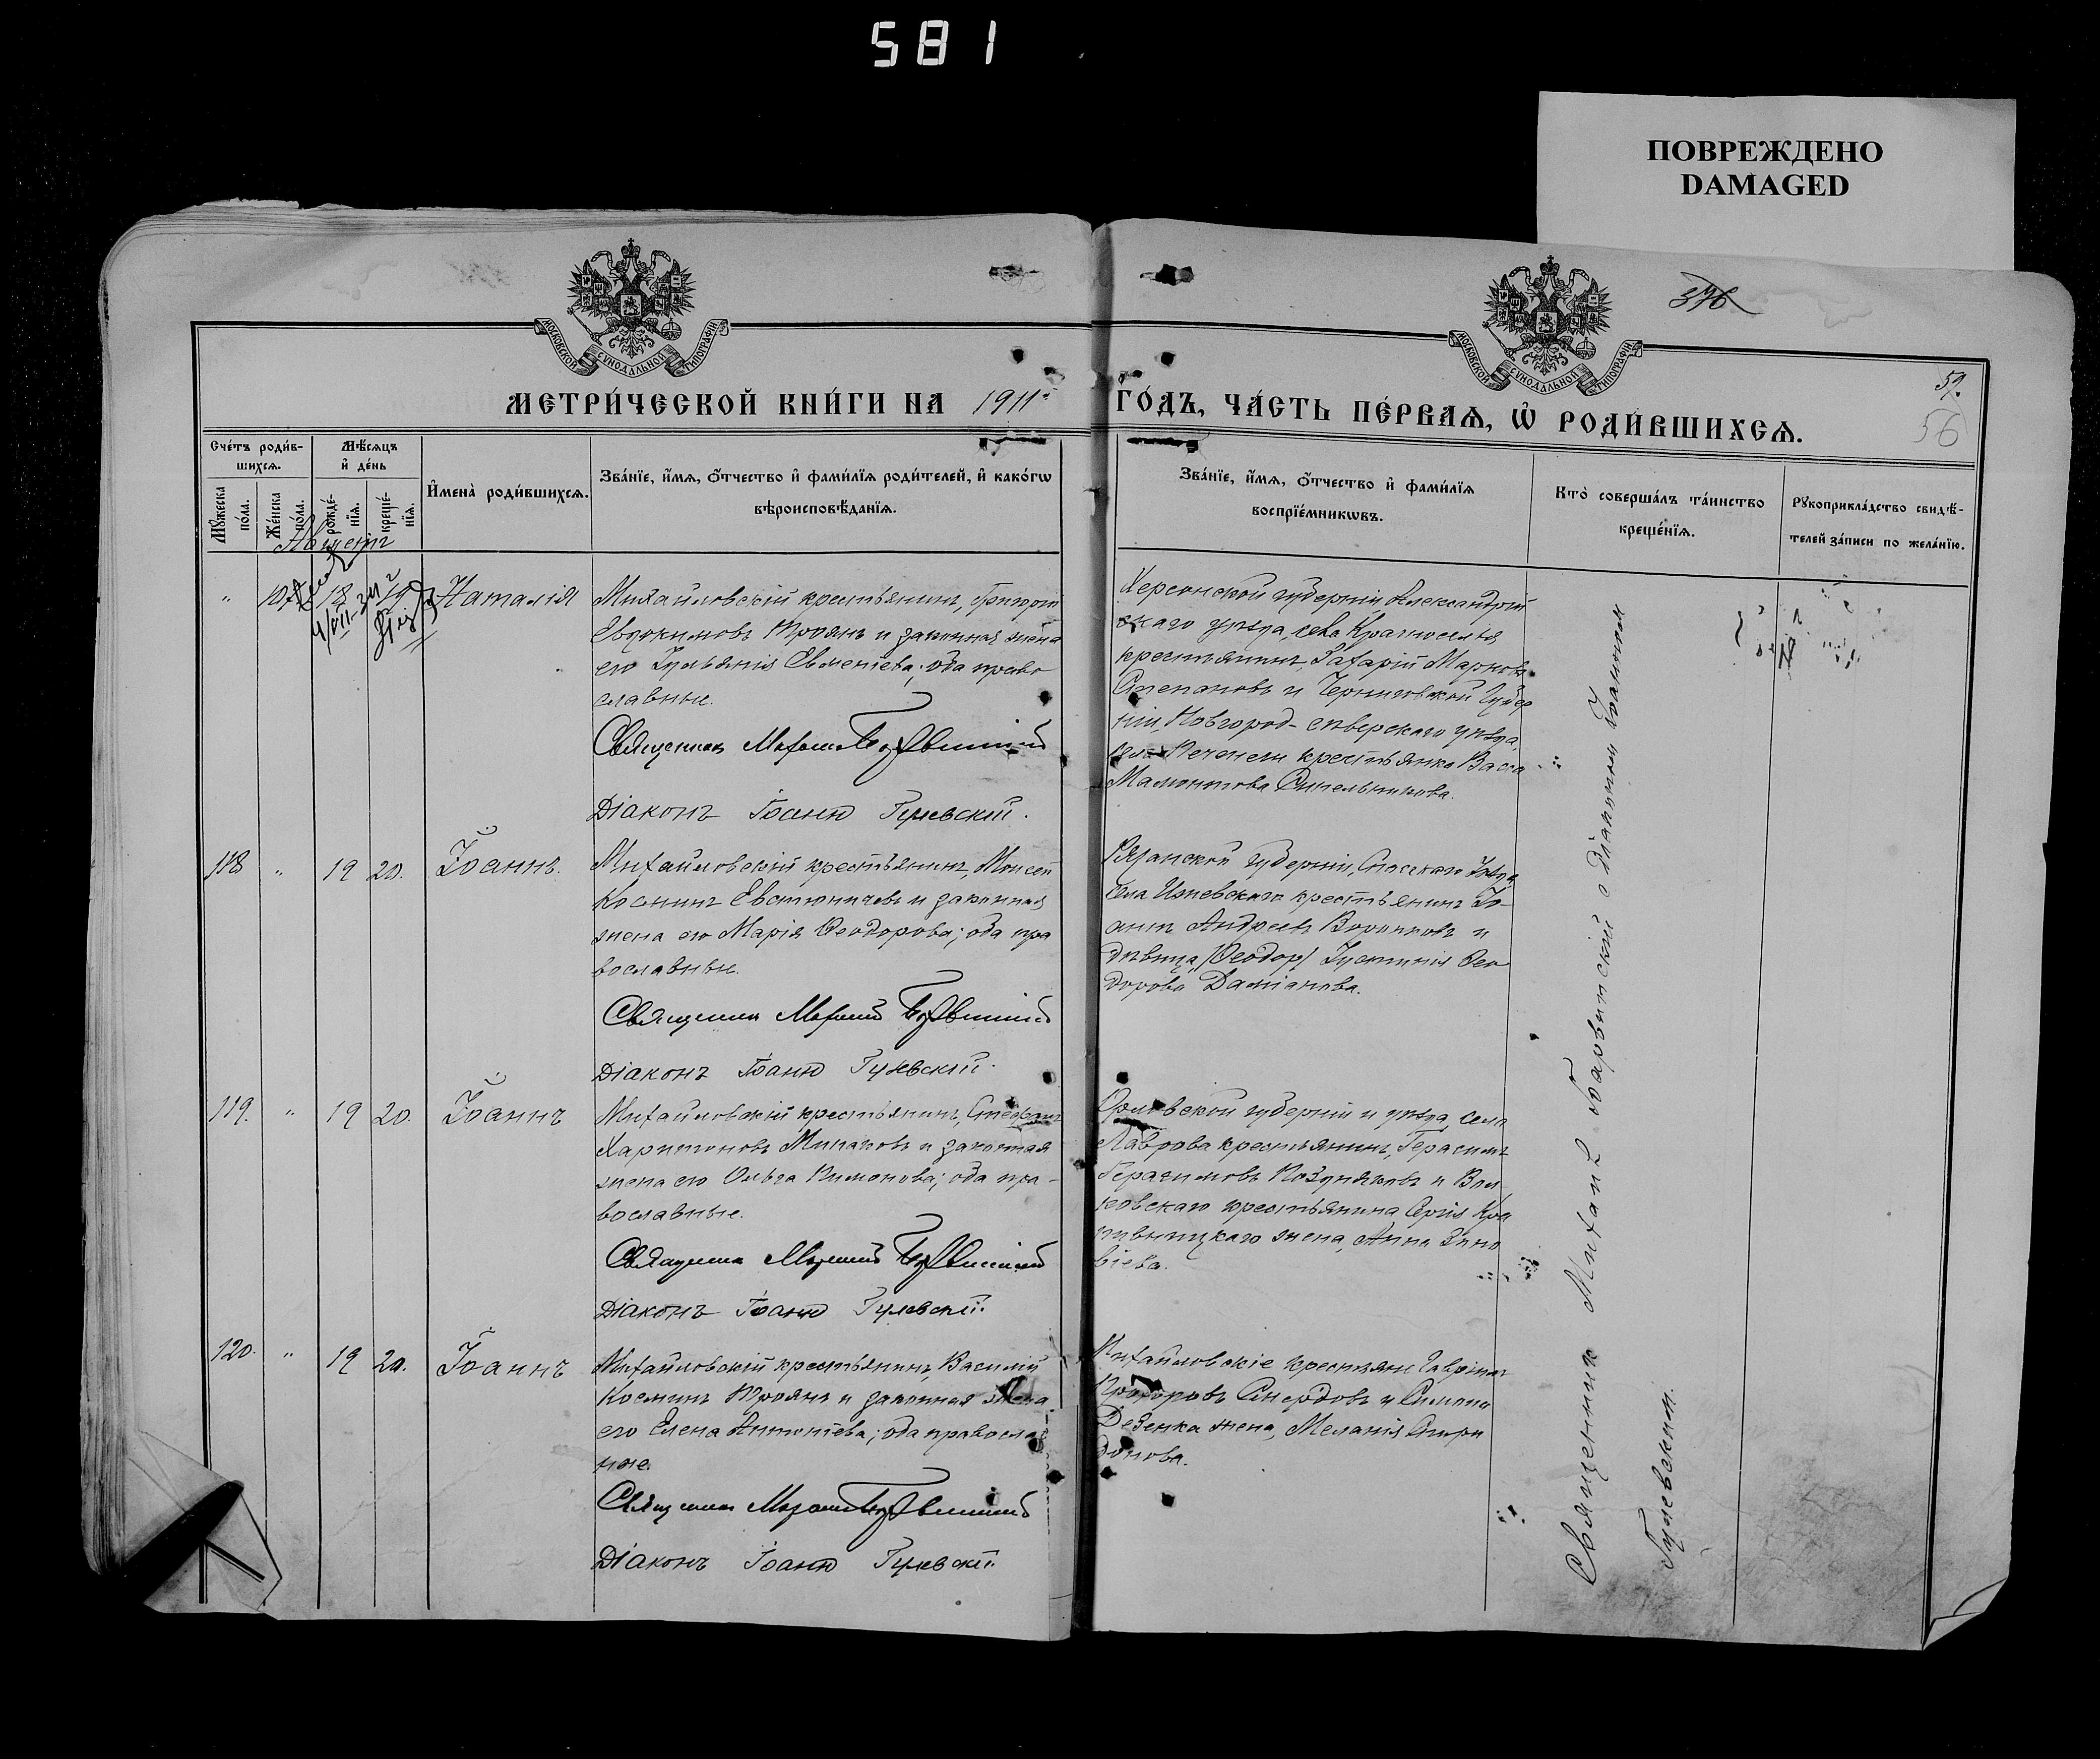 581
ПОВРЕЖДЕНО
DAMAGED
376
МОСКОВСКОЙ СѴНОДАЛЬНОЙ ТИПОГРАФІИ
МОСКОВСКОЙ СѴНОДАЛЬНОЙ ТИПОГРАФІИ
59.
56
МЕТРИ́ЧЕСКОЙ КНИ́ГИ НА 1911й ГО́ДЪ, ЧА́СТЬ ПЕ́РВАѦ, Ѡ РОДИ́ВШИХСѦ.
Сче́тъ роди́в-
шихсѧ.
Мꙋжеска по́ла.
Же́нска по́ла.
Мѣ́сѧцъ
и҆ де́нь
рожде́-
нїѧ.
креще́-
нїѧ.
И҆мена̀ роди́вшихсѧ.
Зва́нїе, и҆́мѧ, ѻ҆́тчество и҆ фами́лїѧ роди́телей, и҆ како́гѡ
вѣроисповѣ́данїѧ.
Зва́нїе, и҆́мѧ, ѻ҆́тчество и҆ фами́лїѧ
воспрїе́мникѡвъ.
Кто̀ соверша́лъ та́инство
креще́нїѧ.
Рꙋкоприкла́дство свидѣ́-
телей за́писи по жела́нїю.
Августъ
" 107 18 19 Наталія
Михайловскій крестьянинъ, Григорій
Евдокимовъ Троянъ и законная жена
его Іульянія Евменіева; оба право
славные.
Священник
Діаконъ Іоаннъ Гулевскій.
Херсонской губерніи, Александрій
скаго уѣзда, села Красноселья
крестьянинъ, Захарій Марковъ
Степановъ и Черниговской Губер
ніи, Новгород-сѣверскаго уѣзда,
села Печенеги крестьянка Васса
Мамонтова Синельникова.
118 " 19 20. Іоаннъ.
Михайловскій крестьянинъ, Моисей
Косминъ Евстюничевъ и законная
жена его Марія Ѳеодорова; оба пра
вославные.
Священник
Діаконъ Іоаннъ Гулевскій.
Рязанской губерніи, Спасскаго Уѣзда,
села Ижевскаго крестьянинъ Іо-
аннъ Андреевъ Воронковъ и
дѣвица, (Ѳеодор) Іустинія Ѳео
дорова Даміанова.
119. " 19 20. Іоаннъ
Михайловскій крестьянинъ, Стефанъ
Харитоновъ Минаковъ и законная
жена его Ольга Пимонова; оба пра-
вославные.
Священник
Діаконъ Іоаннъ Гулевскій.
Орловской губерніи и уѣзда, села
Лаврова крестьянинъ, Герасимъ
Герасимовъ Поздняковъ и Вол
ковскаго крестьянина Сергія Кра
пивницкаго жена, Анна Зино
віева.
120. " 19 20. Іоаннъ
Михайловскій крестьянинъ, Василій
Косминъ Троянъ и законная жена
его Елена Антоніева; оба православ
ные.
Священник
Діаконъ Іоаннъ Гулевскій.
Михайловскіе крестьяне Гавріилъ
Прохоровъ Смердовъ и Симона
Дезенка жена, Меланія Спири
донова.
Священник Михаилъ с діакономъ Іоанномъ
Гулевскимъ.